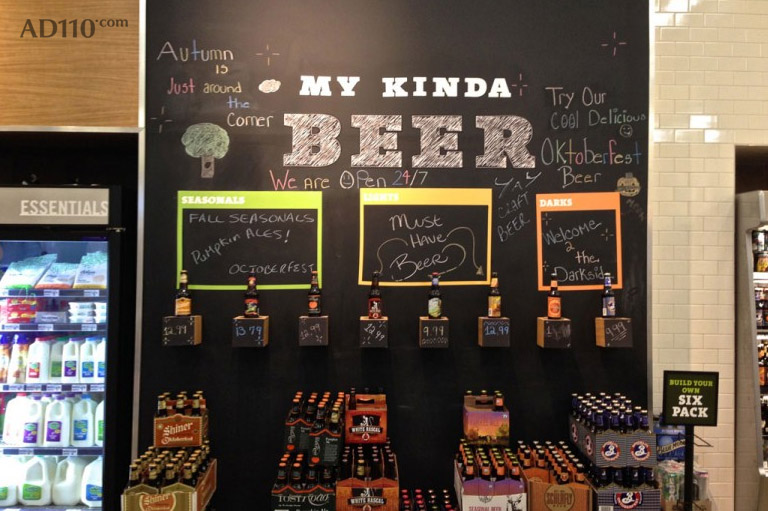 AD110.com
Autumn
is
Just around
the
Corner
MY KINDA
BEER
We are Open 24/7
Try Our
COOl Delicious
OKtoberfest
Beer
YAY
CRAFT
BEER
ESSENTIALS
SEASONALS
FALL SEASONALS
Pumpkin ALES!
OCTOBERFEST
LIGHTS
Must
Have
Beer
DARKS
Welcome
2
the
Darkside
12.99
13.79
12.99
12.99
9.99
12.99
9.99
BUILD YOUR
OWN
SIX
PACK
Shiner
Oktoberfest
WHITE RASCAL
Shiner
WHITE RASCAL
SEASONAL BEER